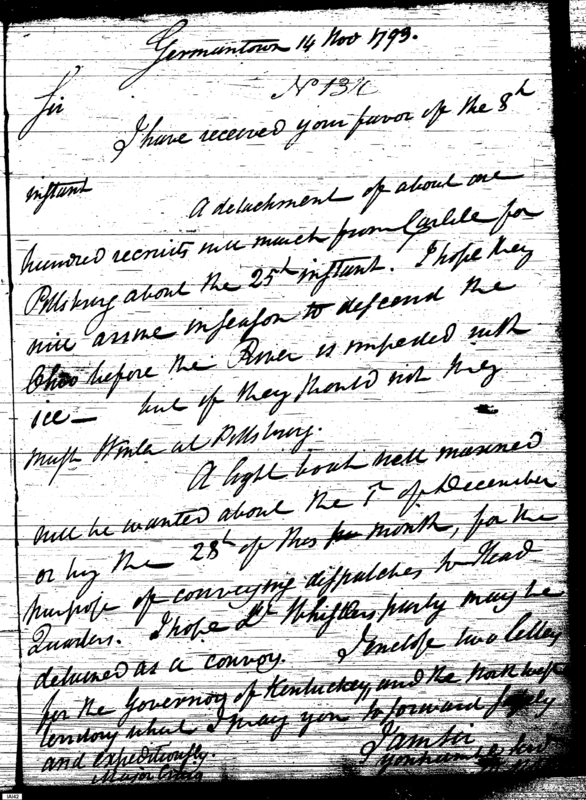 Germantown 14 Nov 1793.
No 134
Sir
I have received your favor of the 8th
instant
A detachment of about one
hundred recruits will march from Carlile for
Pittsburg about the 25th instant. I hope they
will arrive in season to descend the
Ohio before the River is impeded with
ice— but if they should not they
must Winter at Pittsburg.
A light boat well manned
will be wanted about the 1st of December
or by the 28th of this month, for the
purpose of conveying dispatches to Head
Quarters. I hope Lt Whistlers party may be
detained as a convoy. I enclose two letters
for the Governors of Kentuckey, and the North west
territory which I pray you to forward safely
and expeditiously.
I am Sir
your humble Servt
Major Craig
IAI42